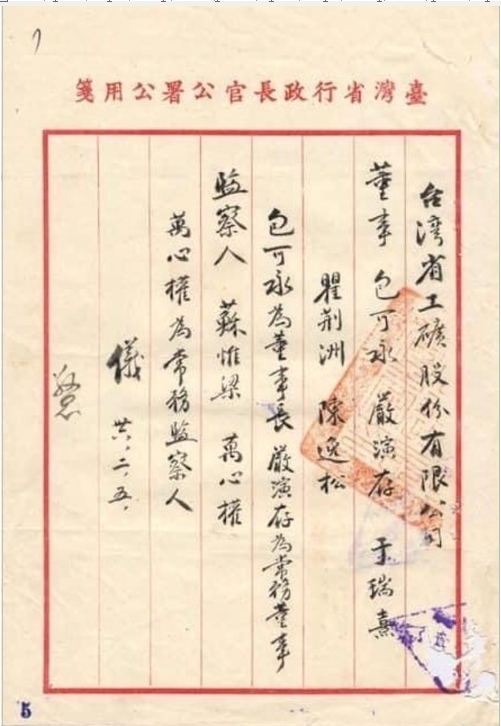 臺灣省行政長官公署公用箋
台湾省工礦股份有限公司
董事 包可永 嚴演存 王瑞熹
瞿荆洲 陳逸松
包可永為董事長 嚴演存為常務董事
監察人 蘇惟梁 萬心權
萬心權為常務監察人
儀 卅六.二.五.
5